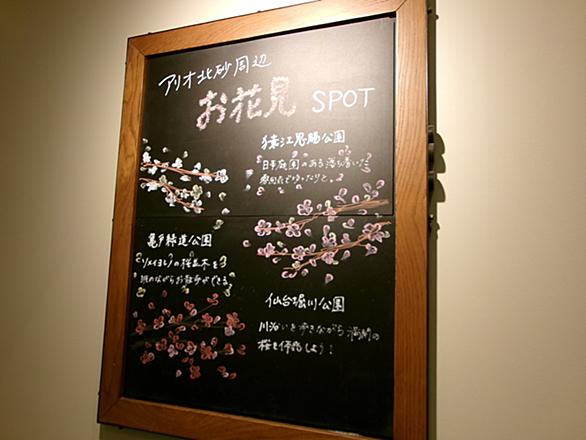 アリオ北砂周辺
お花見 SPOT
猿江恩賜公園
日本庭園のある落ち着いた
雰囲気でゆったりと。
亀戸緑道公園
ソメイヨシノの桜並木を
眺めながらお散歩ができる。
仙台堀川公園
川沿いを歩きながら満開の
桜を保館しよう!